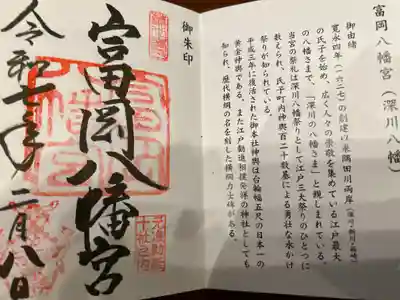 富岡八幡宮(深川八幡)
御由緒
寛永四年(一六二七)の創建以来隅田川両岸(深川・新川・箱崎)
の氏子を始め、広く人々の崇敬を集めている江戸最大
の八幡さまで、「深川の八幡さま」と親しまれている。
当宮の祭礼は深川八幡祭りとして江戸三大祭のひとつに
数えられ、氏子町内神輿百二十数基による勇壮な水かけ
祭りが知られている。
平成三年に復活された御本社神輿は台輪幅五尺の日本一の
黄金神輿である。また江戸勧進相撲発祥の神社としても
知られ、歴代横綱の名を刻した横綱力士碑がある。
御朱印
富岡八幡宮
令和七年二月八日